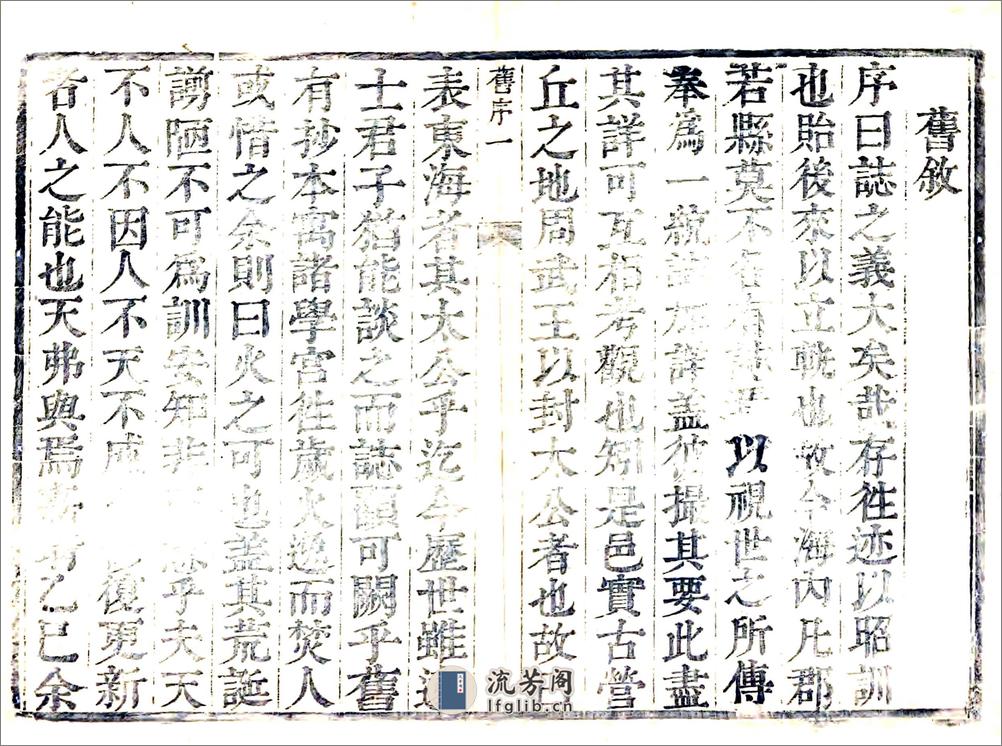 舊敘
序曰誌之義大矣哉存往迹以昭訓
也貽後來以立戰也故今海內凡郡
若縣莫不各有以視世之所傳
奉為一統誌加詳蓋彼撮其要此盡
其詳可互相考觀也矧是邑實古營
丘之地周武王以封太公者也故
舊序一
表東海者其太公乎迄今歷世雖遠
士君子猶能談之而誌顧可闕乎舊
有抄本寓諸學宮往歲火逸而焚人
或惜之余則曰火之可也蓋其荒誕
謭陋不可為訓安知非乎夫天
不人不因人不天不成復更新
者人之能也天弗與焉乃已余
流芳阁
lfglib.cn